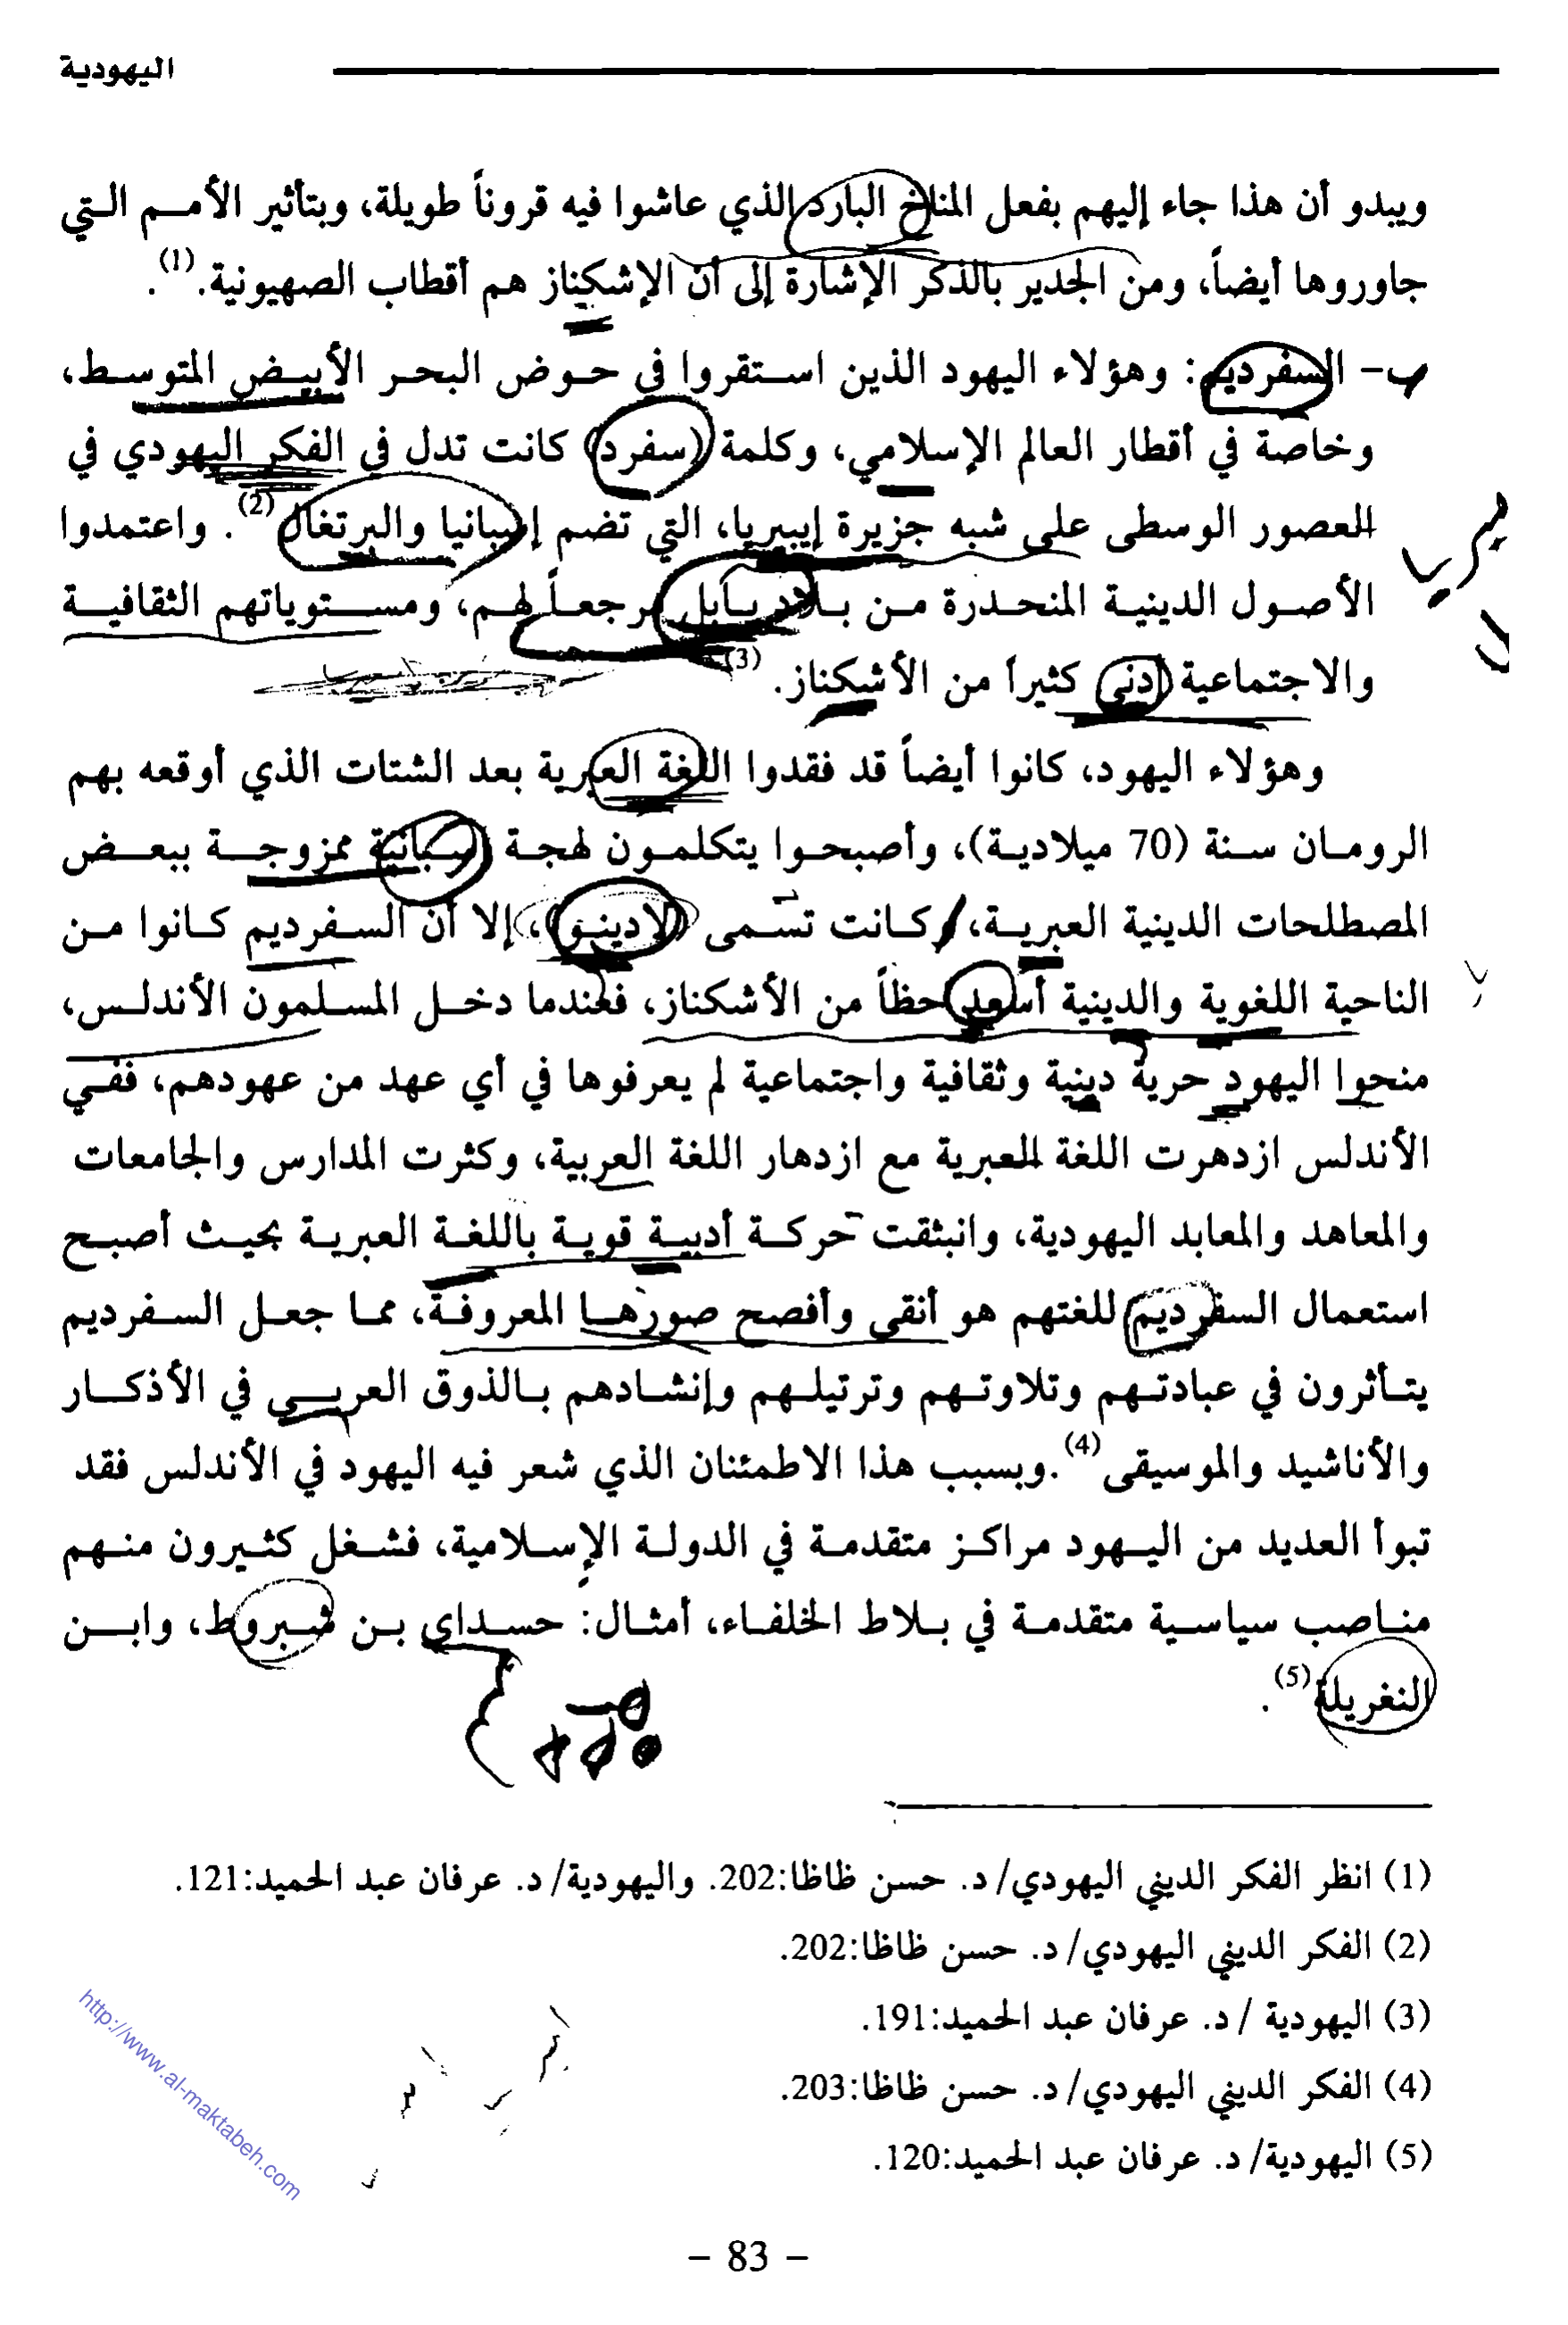 اليهودية
ويبدو أن هذا جاء إليهم بفعل المناخ البارد الذي عاشوا فيه قروناً طويلة، وبتأثير الأمـم الـتي
جاوروها أيضاً، ومن الجدير بالذكر الإشارة إلى أن الإشكناز هم أقطاب الصهيونية.(1).
ب- السفرديم: وهؤلاء اليهود الذين استقروا في حوض البحر الأبيض المتوسط،
وخاصة في أقطار العالم الإسلامي، وكلمة (سفرد) كانت تدل في الفكر اليهودي في
العصور الوسطى على شبه جزيرة إيبيريا، التي تضم إسبانيا والبرتغال(2). واعتمدوا
الأصول الدينية المنحدرة من بلاد بابل مرجعاً لهم، ومستوياتهم الثقافية
والاجتماعية أدنى كثيراً من الأشكناز.(3)
وهؤلاء اليهود، كانوا أيضاً قد فقدوا اللغة العبرية بعد الشتات الذي أوقعه بهم
الرومان سنة (70 ميلادية)، وأصبحوا يتكلمون لهجة إسبانية ممزوجة ببعض
المصطلحات الدينية العبرية، وكانت تسمى (لادينو)، إلا أن السفرديم كانوا من
الناحية اللغوية والدينية أسعد حظاً من الأشكناز، فعندما دخل المسلمون الأندلس،
منحوا اليهود حرية دينية وثقافية واجتماعية لم يعرفوها في أي عهد من عهودهم، ففي
الأندلس ازدهرت اللغة العبرية مع ازدهار اللغة العربية، وكثرت المدارس والجامعات
والمعاهد والمعابد اليهودية، وانبثقت حركة أدبية قوية باللغة العبرية بحيث أصبح
استعمال السفرديم للغتهم هو أنقى وأفصح صورها المعروفة، مما جعل السفرديم
يتأثرون في عبادتهم وتلاوتهم وترتيلهم وإنشادهم بالذوق العربي في الأذكار
والأناشيد والموسيقى(4).وبسبب هذا الاطمئنان الذي شعر فيه اليهود في الأندلس فقد
تبوأ العديد من اليهود مراكز متقدمة في الدولة الإسلامية، فشغل كثيرون منهم
مناصب سياسية متقدمة في بلاط الخلفاء، أمثال: حسداي بن شبروط، وابن
النغريلة(5).
(1) انظر الفكر الديني اليهودي/ د. حسن ظاظا:202. واليهودية/ د. عرفان عبد الحميد:121.
(2) الفكر الديني اليهودي/ د. حسن ظاظا:202.
(3) اليهودية / د. عرفان عبد الحميد:191.
(4) الفكر الديني اليهودي/ د. حسن ظاظا:203.
(5) اليهودية/ د. عرفان عبد الحميد:120.
http://www.al-maktabeh.com
– 83 –